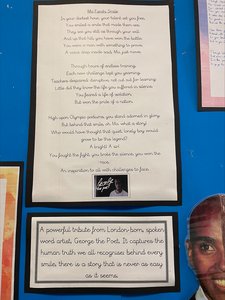 Mo Farah's Smile
In your darkest hour, your talent set you free,
You smiled a smile that made them see.
They see you still as through your veil
And up that hill, you have won the battle.
You were a man with something to prove,
A voice deep inside said, Mo just move.
Through hours of endless training,
Each new challenge kept you yearning.
Teachers despaired: disruptive, not cut out for learning
Little did they know the life you suffered in silence.
You feared a life of isolation,
But won the pride of a nation.
High upon Olympic podiums, you stand adorned in glory
But behind that smile, oh Mo, what a story!
Who would have thought that quiet, lonely boy would
grow to be this legend?
A knight! A sir!
You fought the fight, you broke the silence, you won the
race.
An inspiration to all with challenges to face.
George
the poet
A powerful tribute from London-born, spoken
word artist, George the Poet. It captures the
human truth we all recognise: behind every
smile, there is a story that is never as easy
as it seems.